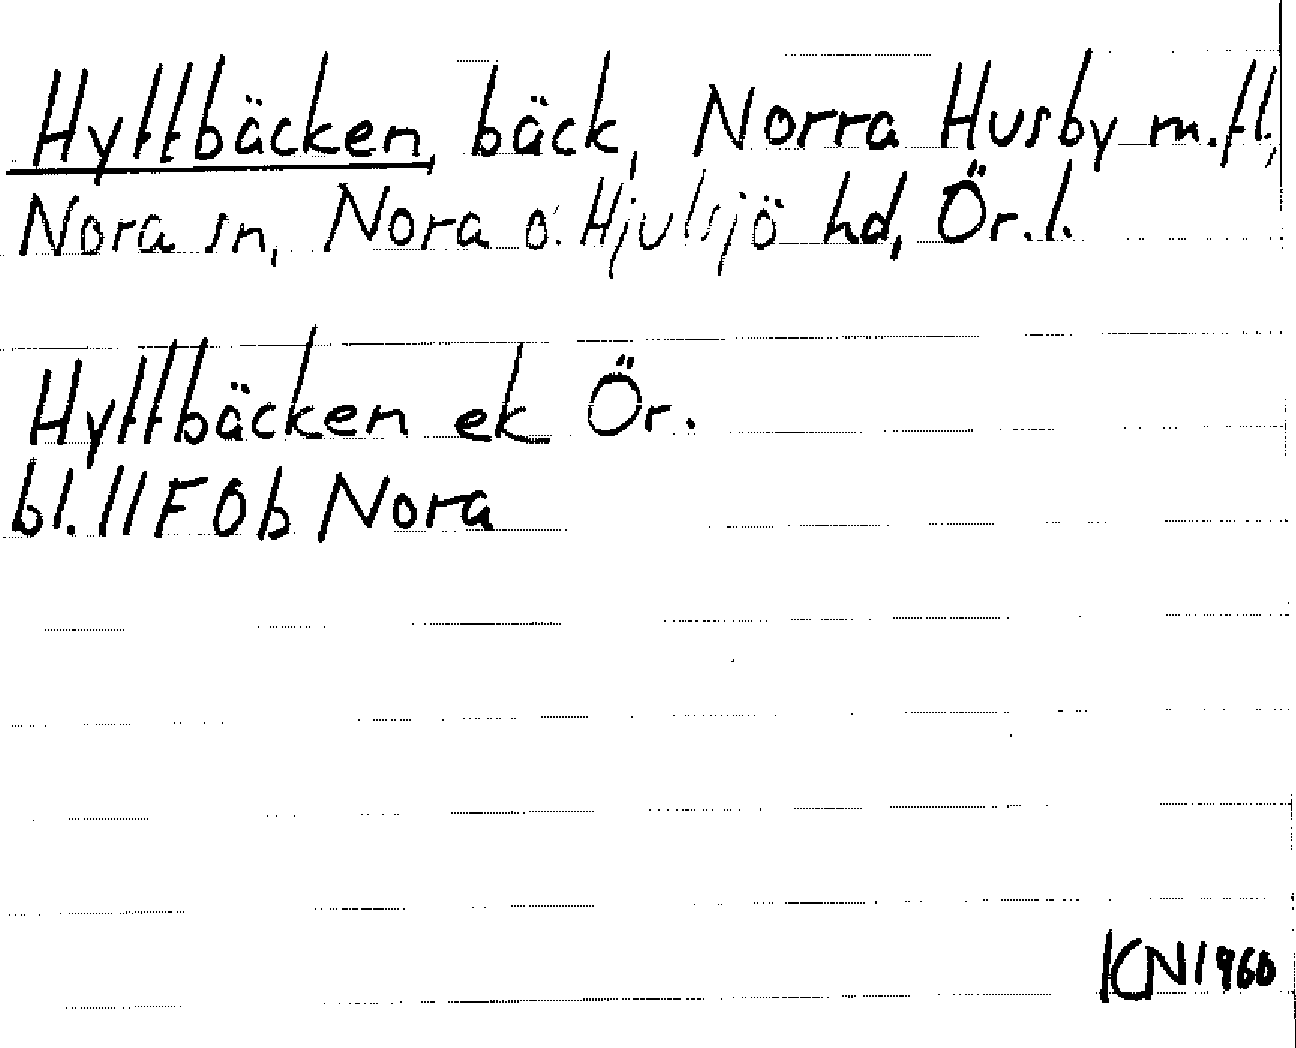 Hyttbäcken, bäck, Norra Husby m.fl.,
Nora sn, Nora o. Hjulsjö hd, Ör.l.
Hyttbäcken ek Ör.
bl. 11F 0b Nora
KN 1960